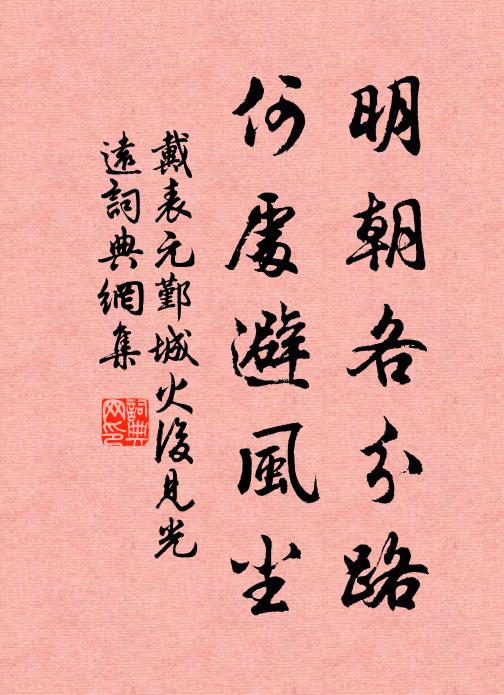 明朝各分路
何處避風尘
戴表元鄞城火後見光
遠詞典網集
詞典网印